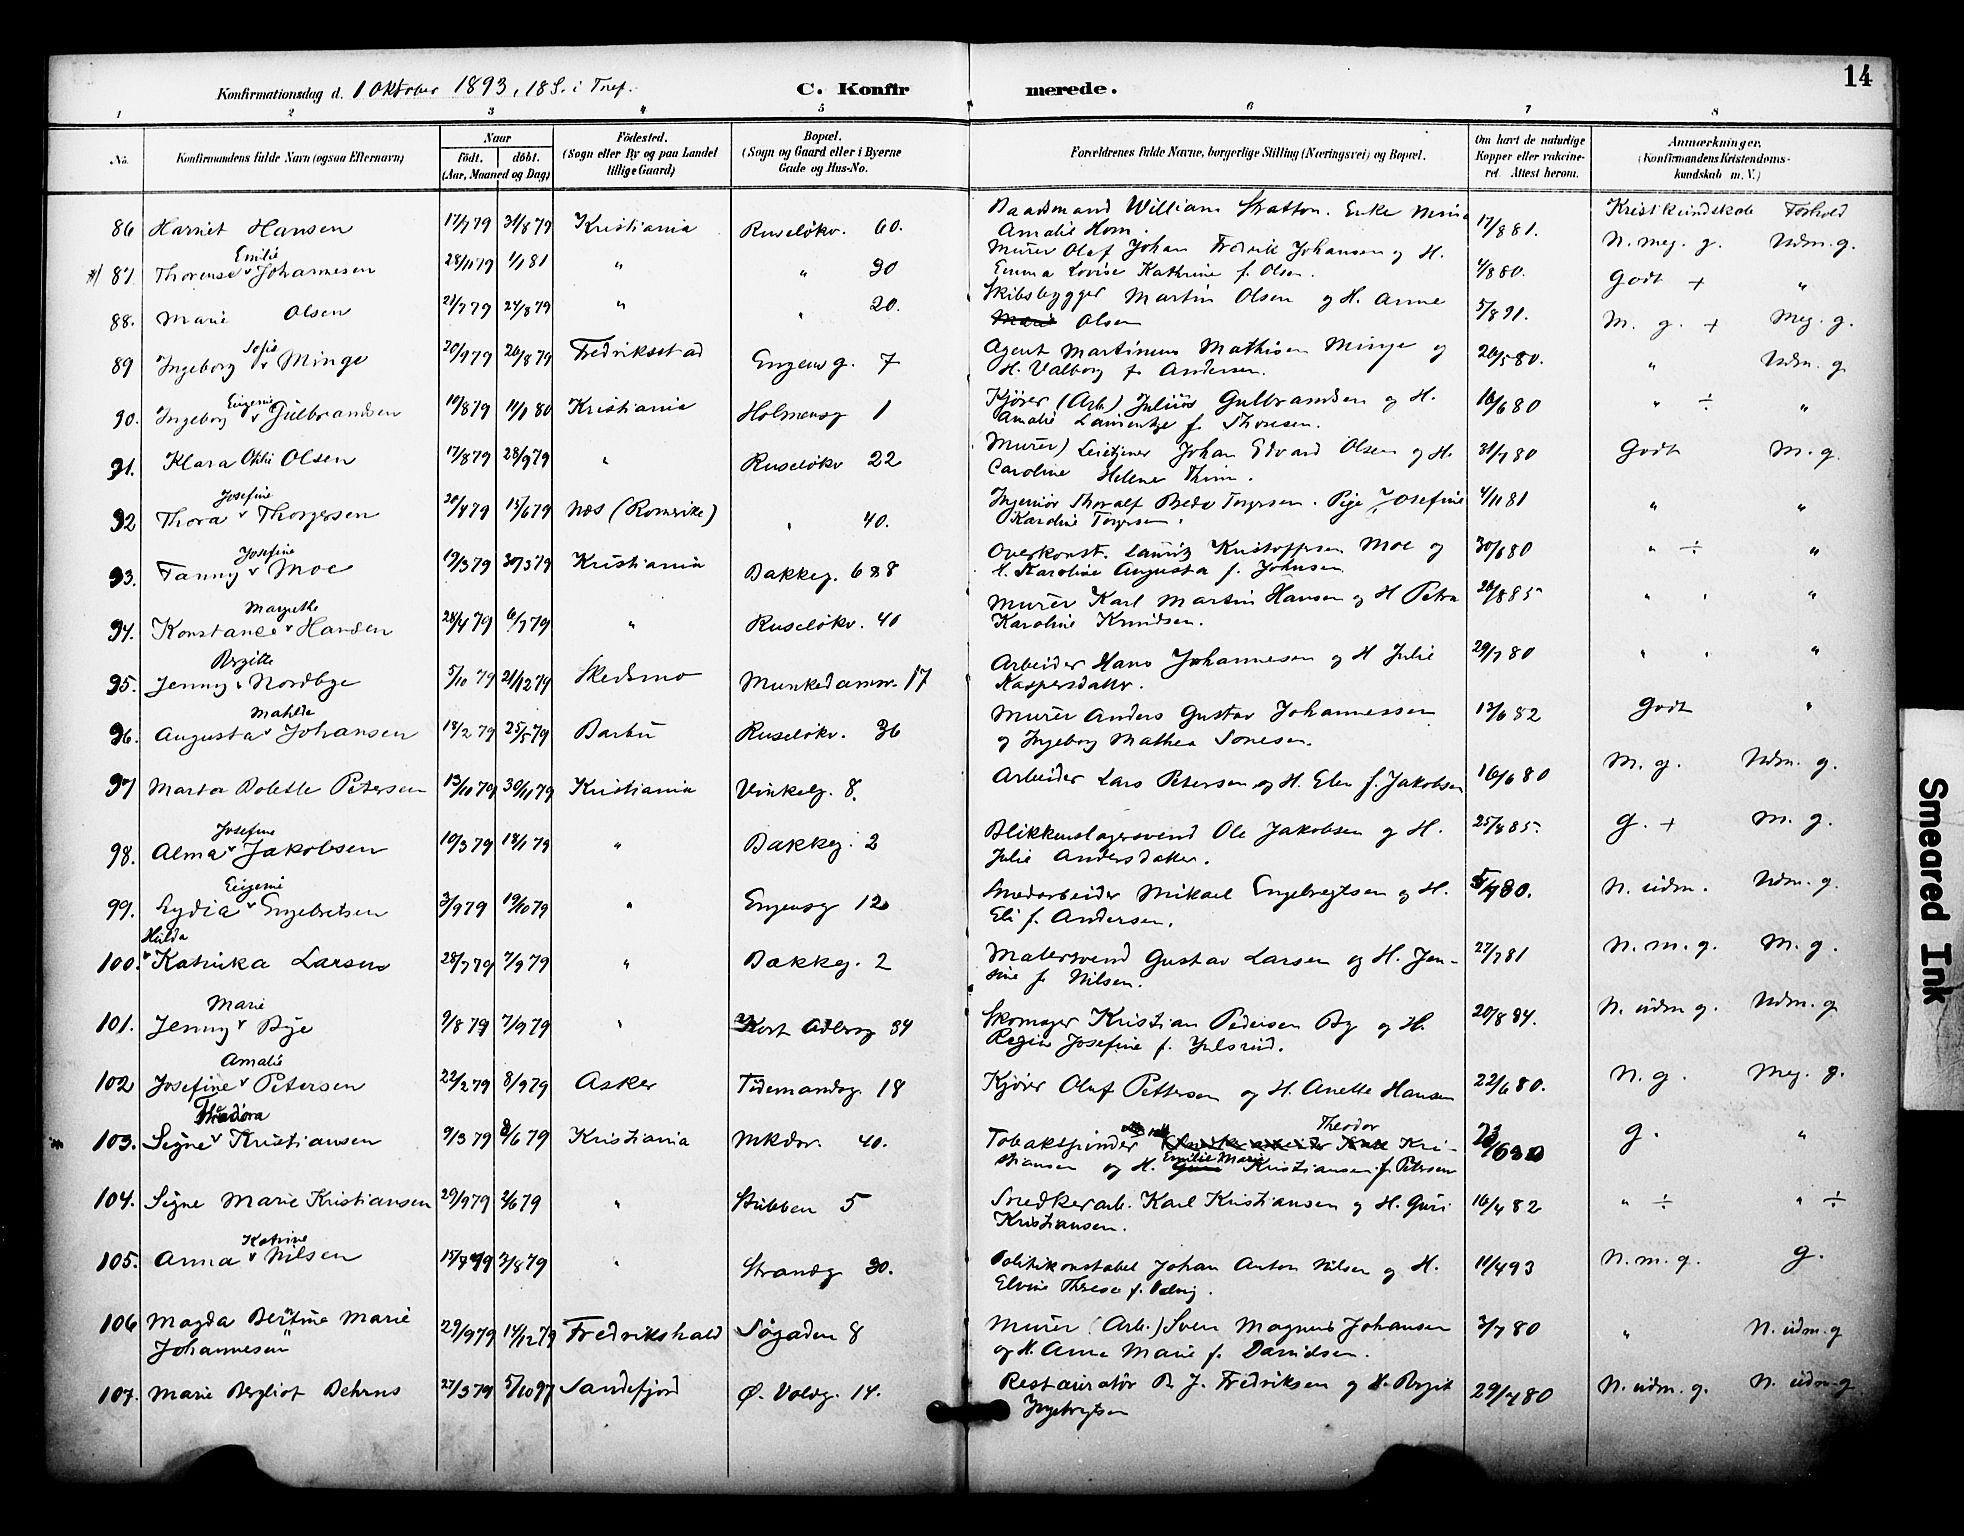 14
Konfirmationsdag d. 1 Oktober 1893, 18 S. i Tref.
C. Konfirmerede.
1 2 3 4 5 6 7 8
No.
Konfirmandens fulde Navn (ogsaa Efternavn)
Naar
födt. döbt.
(Aar, Maaned og Dag)
Födested.
(Sogn eller By og paa Landet
tillige Gaard)
Bopæl.
(Sogn og Gaard eller i Byerne
Gade og Hus-No.
Forældrenes fulde Navne, borgerlige Stilling (Næringsvei) og Bopæl.
Om havt de naturlige
Kopper eller vakcine-
ret. Attest herom.
Anmærkninger.
(Konfirmandens Kristendoms-
kundskab m. V.)
Kristkundskab Forhold
86 Harriet Hansen 17/7 79 31/8 79 Kristiania Ruseløkv. 60. Baadsmand William Stratton. Enke
Amalie Horn. 17/8 81. N. meg. g. Udm. g.
87. Thorense v Johannesen Emilie 28/11 79 1/1 81 " " 30 Murer Olaf Johan Fredrik Johansen og H.
Emma Lovise Kathrine f. Olsen. 4/8 80. Godt + "
88. Marie Olsen 21/7 79 24/8 79 " " 20. Skibsbygger Martin Olsen og H. Anne
Olsen 5/8 91. M. g. + Meg. g.
89 Ingeborg v Minge Sofie 20/7 79 26/8 79 Fredriksstad Engens g. 7 Agent Martinius Mathisen Minge og
H. Valborg f. Andersen. 26/5 80. " Udm. g
90. Ingeborg v Gulbrandsen Eugenie 10/8 79 11/1 80 Kristiania Holmensg 1 Kjører (Arb.) Julius Gulbrandsen og H.
Amalie f. Thoresen. 16/6 80 " ÷ "
91. Klara Othie Olsen 17/8 79 28/9 79 " Ruseløkv 22 Murer) Johan Edvard Olsen og H.
Caroline Helene Thim. 31/7 80 Godt M. g.
92 Thora v Thorgersen Josefine 20/4 79 15/6 79 Næs (Romerike) " 40. Ingeniør Thoralf Torgersen. Pige Josefine
Karoline Torgersen. 4/11 81 " "
93. Fanny v Moe Josefine 19/3 79 30/3 79 Kristiania Bakkeg. 6 & 8 Overkonst. Lauritz Kristoffersen Moe og
H. Karoline Augusta f. Johnsen 30/6 80 " ÷ "
94. Konstance v Hansen Margrethe 28/4 79 6/7 79 " Ruseløkv. 40 Murer Karl Martin Hansen og H Petra
Karoline Knudsen. 26/8 85 " " "
95. Jenny v Nordbye Birgitte 5/10 79 21/12 79 Skedsmo Munkedamsv. 17 Arbeider Hans Johannesen og H Julie
Kaspersdatter. 29/7 80 " " "
96. Augusta v Johansen Mathilde 18/2 79 25/5 79 Barbu Ruseløkv. 36 Murer Anders Gustav Johannessen
og Ingeborg Mathea Tonesen. 12/6 82 Godt "
97 Marta Dolette Petersen 13/10 79 30/11 79 Kristiania Vinkelg. 8. Arbeider Lars Petersen og H. Elen f. Jakobsen 16/6 80 M. g. Udm. g.
98. Alma v Jakobsen Josefine 10/3 79 18/1 79 " Bakkeg. 2 Blikkenslagersvend Ole Jakobsen og H.
Julie Andersdatter. 25/4 85. g. + M. g.
99. Lydia v Engebretsen Eugenie 3/9 79 19/10 79 " Engensg 12 Smedarbeider Mikael Engebregtsen og H.
Eli f. Andersen. 5/7 80. N. udm. Udm. g.
100. v Katinka Larsen Hulda 28/7 79 7/9 79 " Bakkeg. 2 Malersvend Gustav Larsen og H. Jen-
sine f. Nilsen. 27/7 81 N. m. g. M. g.
101. Jenny v Bye Marie 9/8 79 7/9 79 " Kort Adlersg 34 Skomager Kristian Pedersen By og H.
Regine Josefine f. Julsrud. 20/8 84. N. udm g. Udm. g
102 Josefine v Petersen Amalie 22/2 79 8/9 79 Asker Tidemandsg. 18 Kjører Oluf Pettersen og H. Anette Hansen 22/6 80. N. g. Meg. g.
103. Signe v Kristiansen Theodora 9/3 79 8/6 79 Kristiania Mkdv. 40. Tobakspinder Theodor Kri-
stiansen og H. Emilie Marie Kristiansen f. Petersen g. "
104. Signe Marie Kristiansen 29/9 79 2/6 79 " Stubben 5 Snedkerarb. Karl Kristiansen og H. Guri
Kristiansen. 16/4 82 " ÷ " ÷
105. Anna v Nilsen Katrine 15/7 79 3/8 79 " Strandg 30. Politikonstabel Johan Anton Nilsen og H.
Elvine Therese f. 11/4 93 N. m. g. g.
106 Magda Bertine Marie
Johannesen 29/9 79 14/12 79 Fredrikshald Søgaden 8 Murer (Arb.) Sven Magnus Johansen
og H. Anna Marie f. Davidsen. 3/7 80 " N. udm. g
107. Marie Bergliot Behrns 27/3 79 5/10 97 Sandefjord Ø. Voldg. 14. Restauratør B. J. Fredriksen og H. Birgit
Ingebrigtsen 29/4 80 N. udm. g. N. udm. g
Smeared Ink